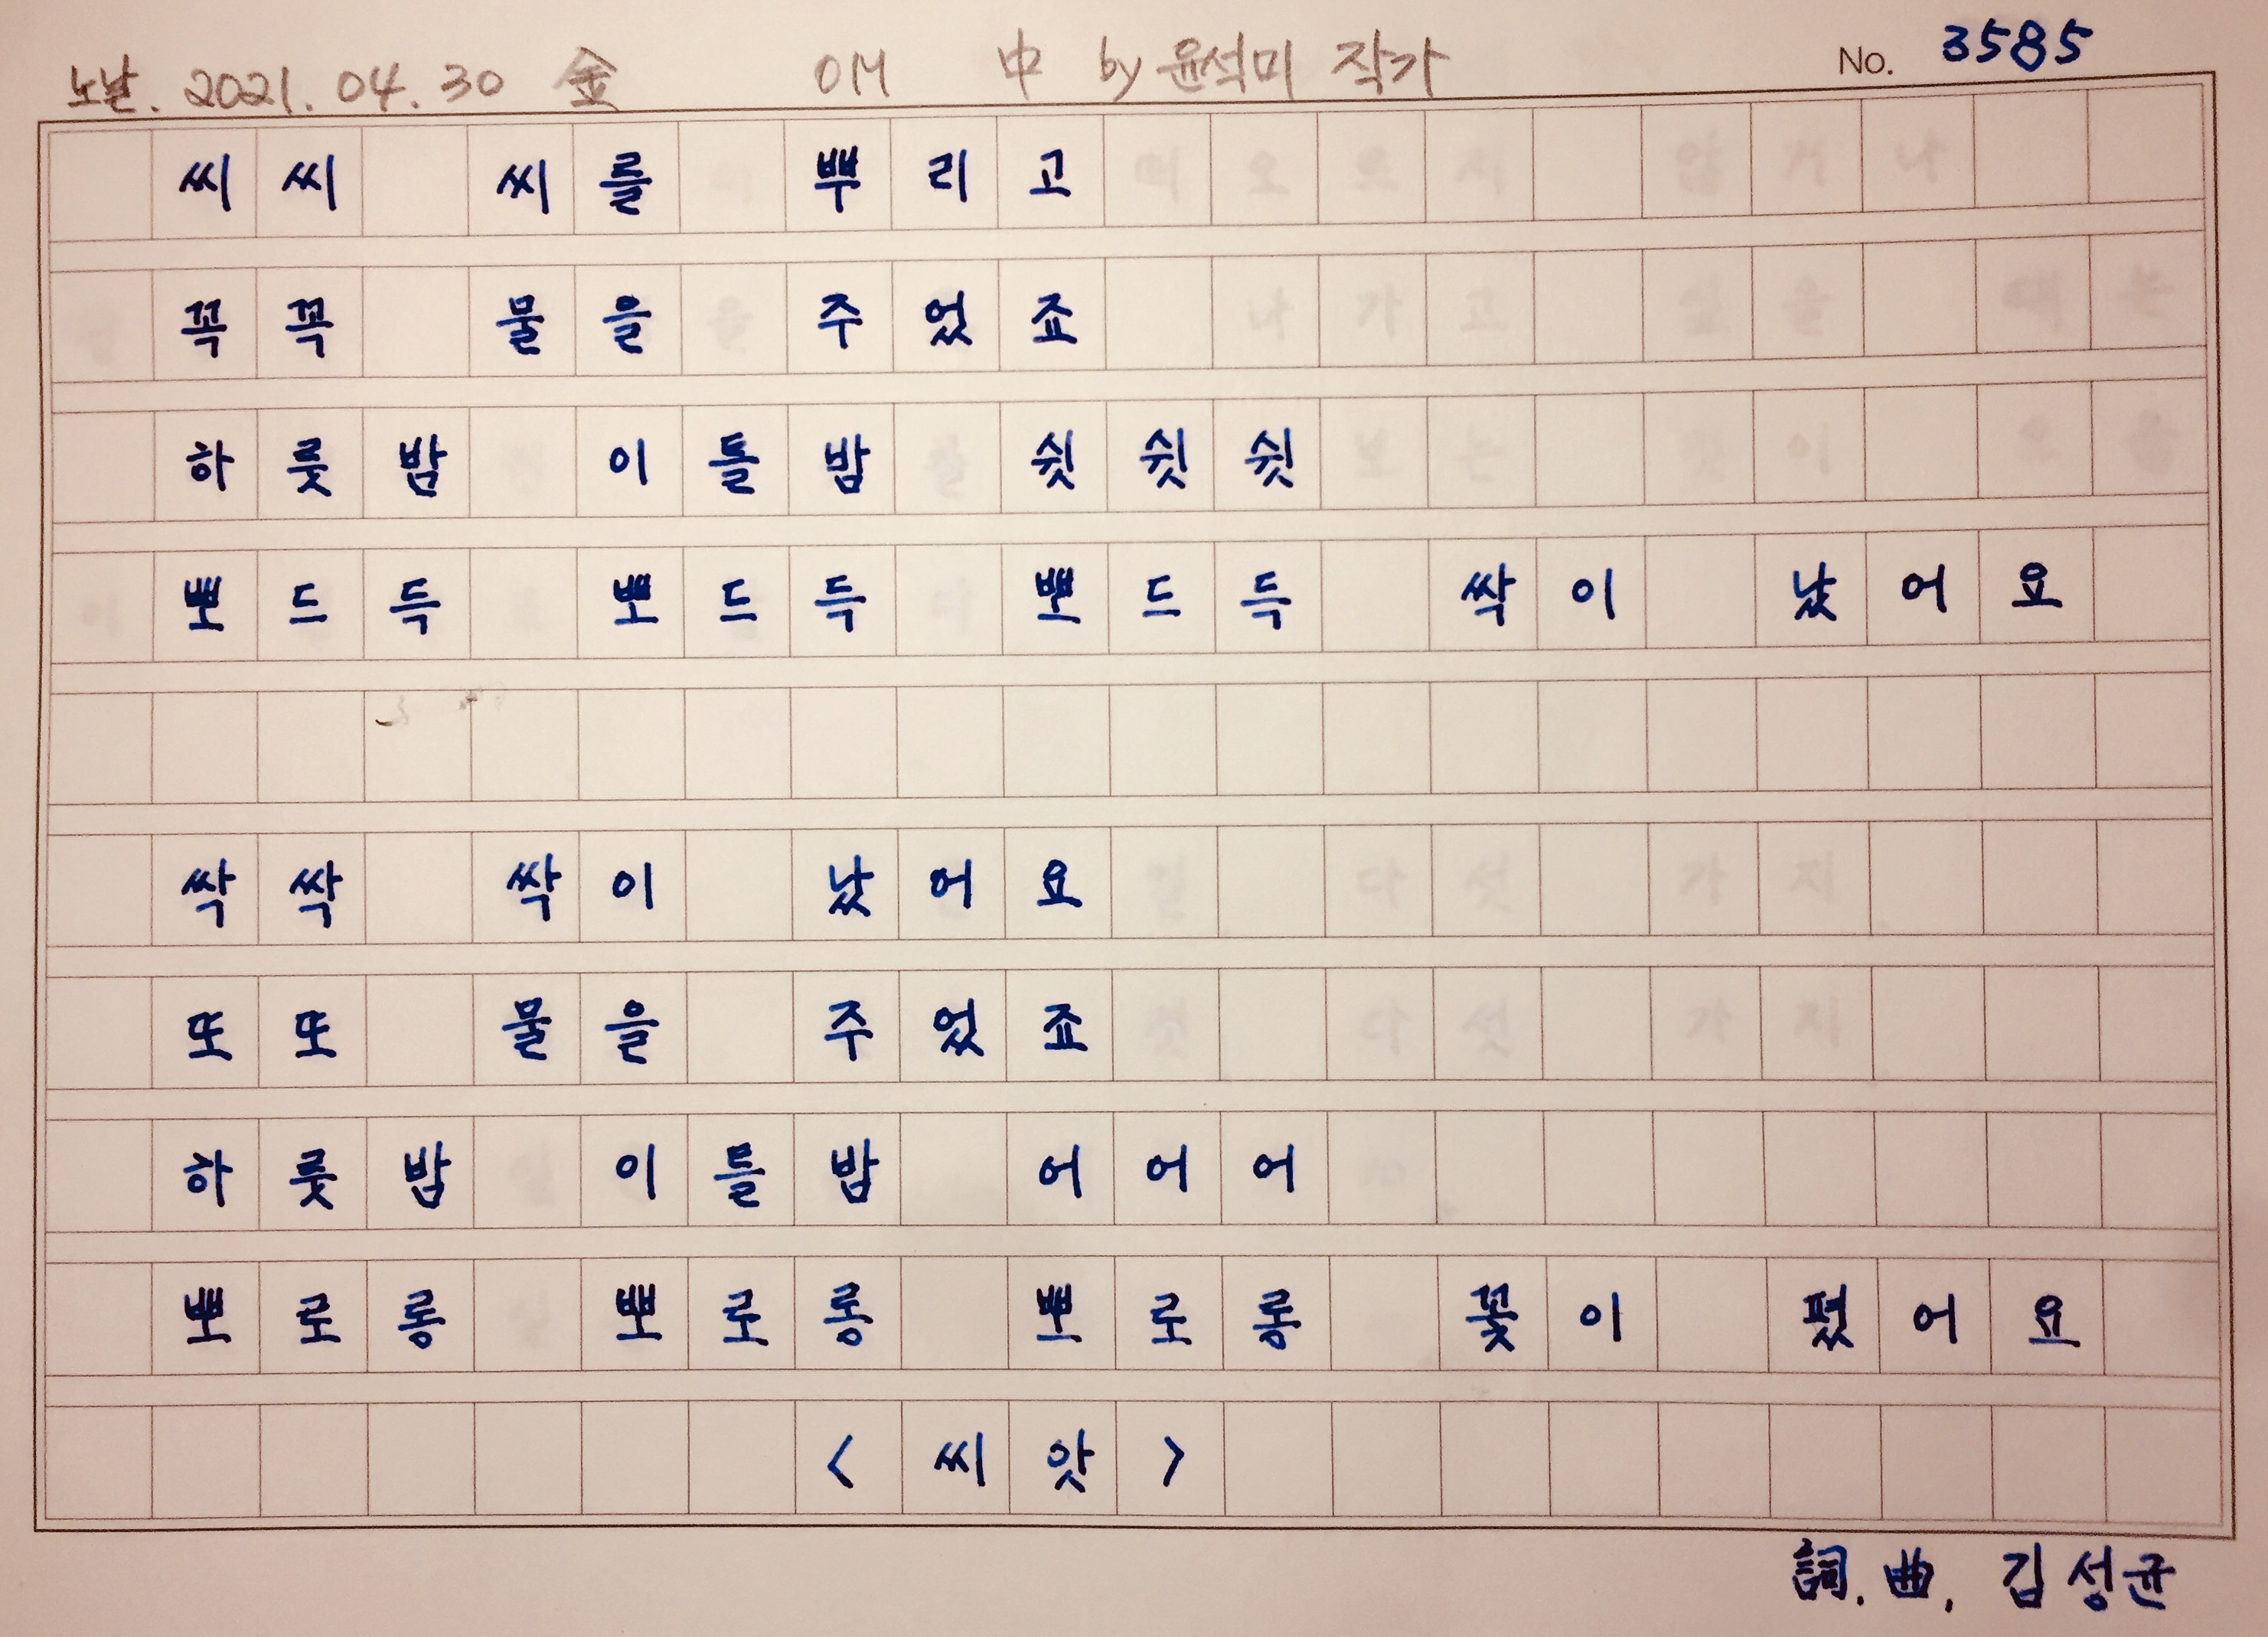 노날. 2021. 04. 30 金 OM 中 by 윤석미 작가 No. 3585
씨씨 씨를 뿌리고
꼭꼭 물을 주었죠
하룻밤 이틀밤 쉿쉿쉿
뽀드득 뽀드득 뽀드득 싹이 났어요
싹싹 싹이 났어요
또또 물을 주었죠
하룻밤 이틀밤 어어어
뽀로롱 뽀로롱 뽀로롱 꽃이 폈어요
<씨앗>
詞. 曲. 김성균